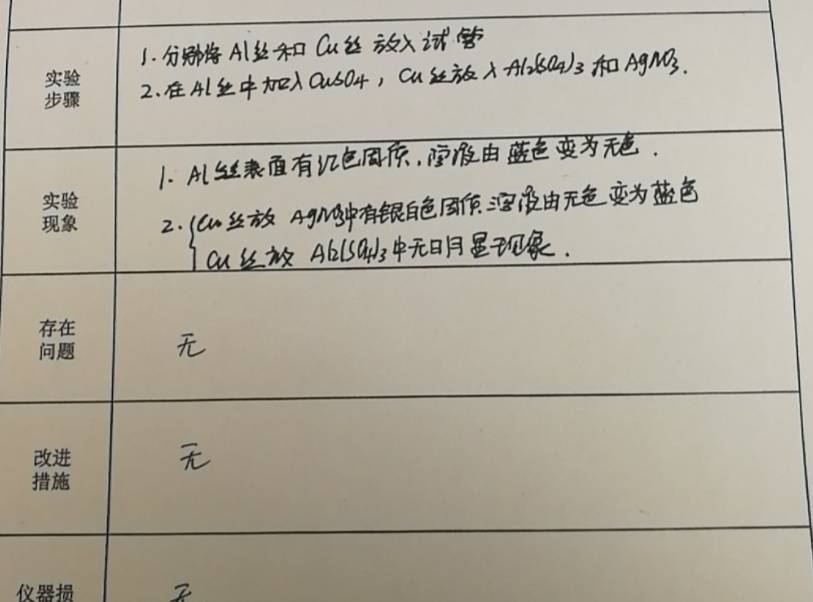 实验
步骤
1. 分别将 Al丝和 Cu丝 放入试管
2. 在 Al丝中加入CuSO4, Cu丝放入Al2(SO4)3 和 AgNO3.
实验
现象
1. Al丝表面有红色固质, 溶液由 蓝色变为无色.
2. Cu丝放 AgNO3中有银白色固质 溶液由无色变为蓝色
Cu丝放 Al2(SO4)3 中无明显现象.
存在
问题
无
改进
措施
无
仪器损
无